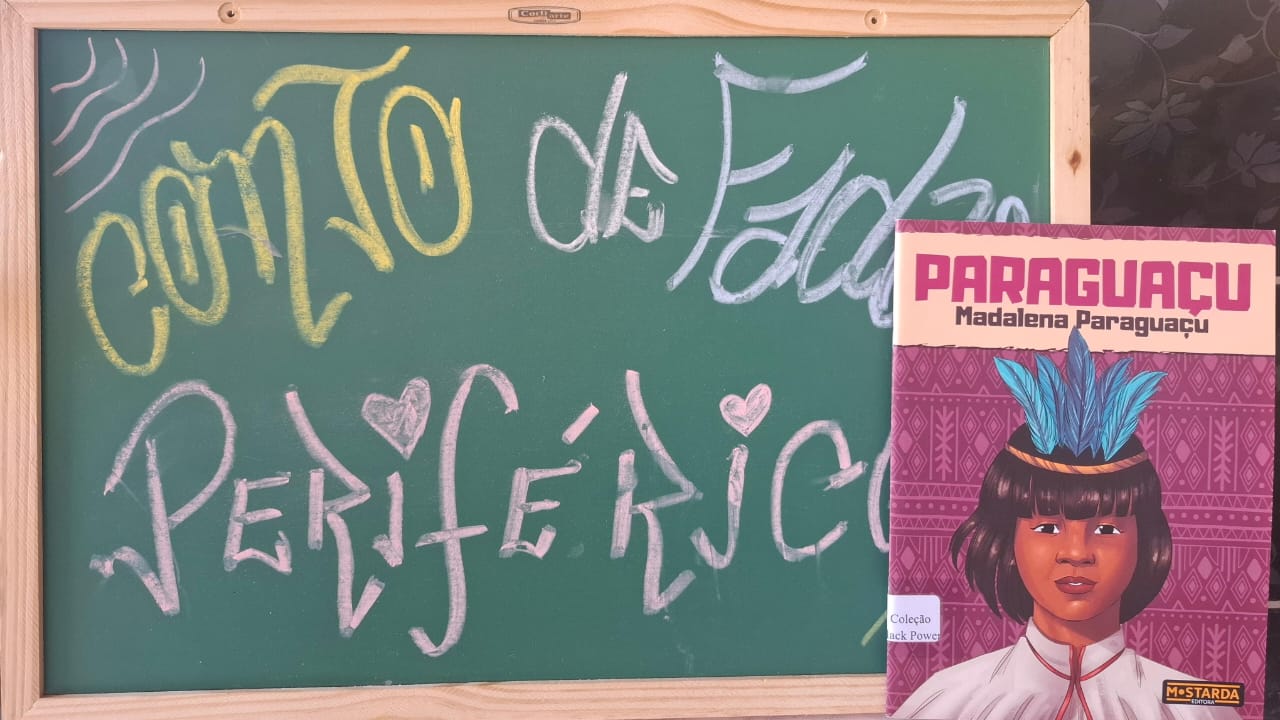 Corti arte
CONTO de Fadas
PERIFÉRICO
PARAGUAÇU
Madalena Paraguaçu
Coleção
ack Power
MOSTARDA
EDITORA